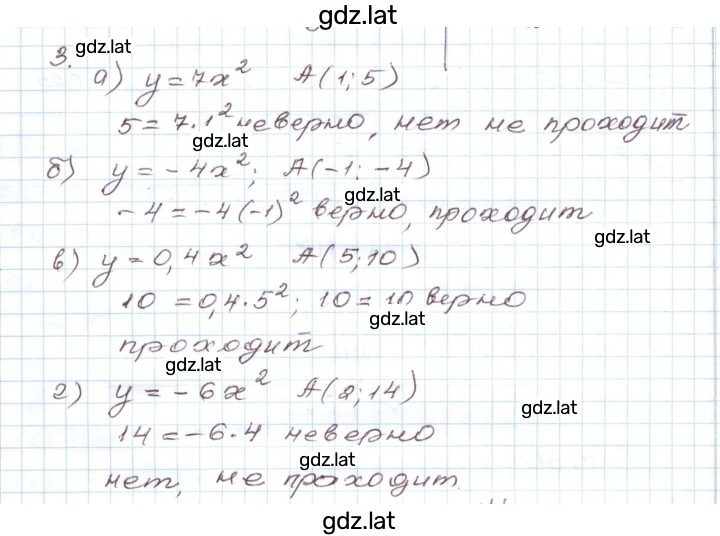 gdz.lat
gdz.lat
3. а) y = 7x² A(1; 5)
5 = 7·1² неверно, нет не проходит
gdz.lat
б) y = -4x²; A(-1; -4)
gdz.lat
-4 = -4(-1)² верно, проходит
gdz.lat
в) y = 0,4x² A(5;10)
10 = 0,4·5²; 10 = 10 верно
gdz.lat
проходит
gdz.lat
г) y = -6x² A(2; 14)
gdz.lat
14 = -6·4 неверно
gdz.lat
нет, не проходит.
gdz.lat